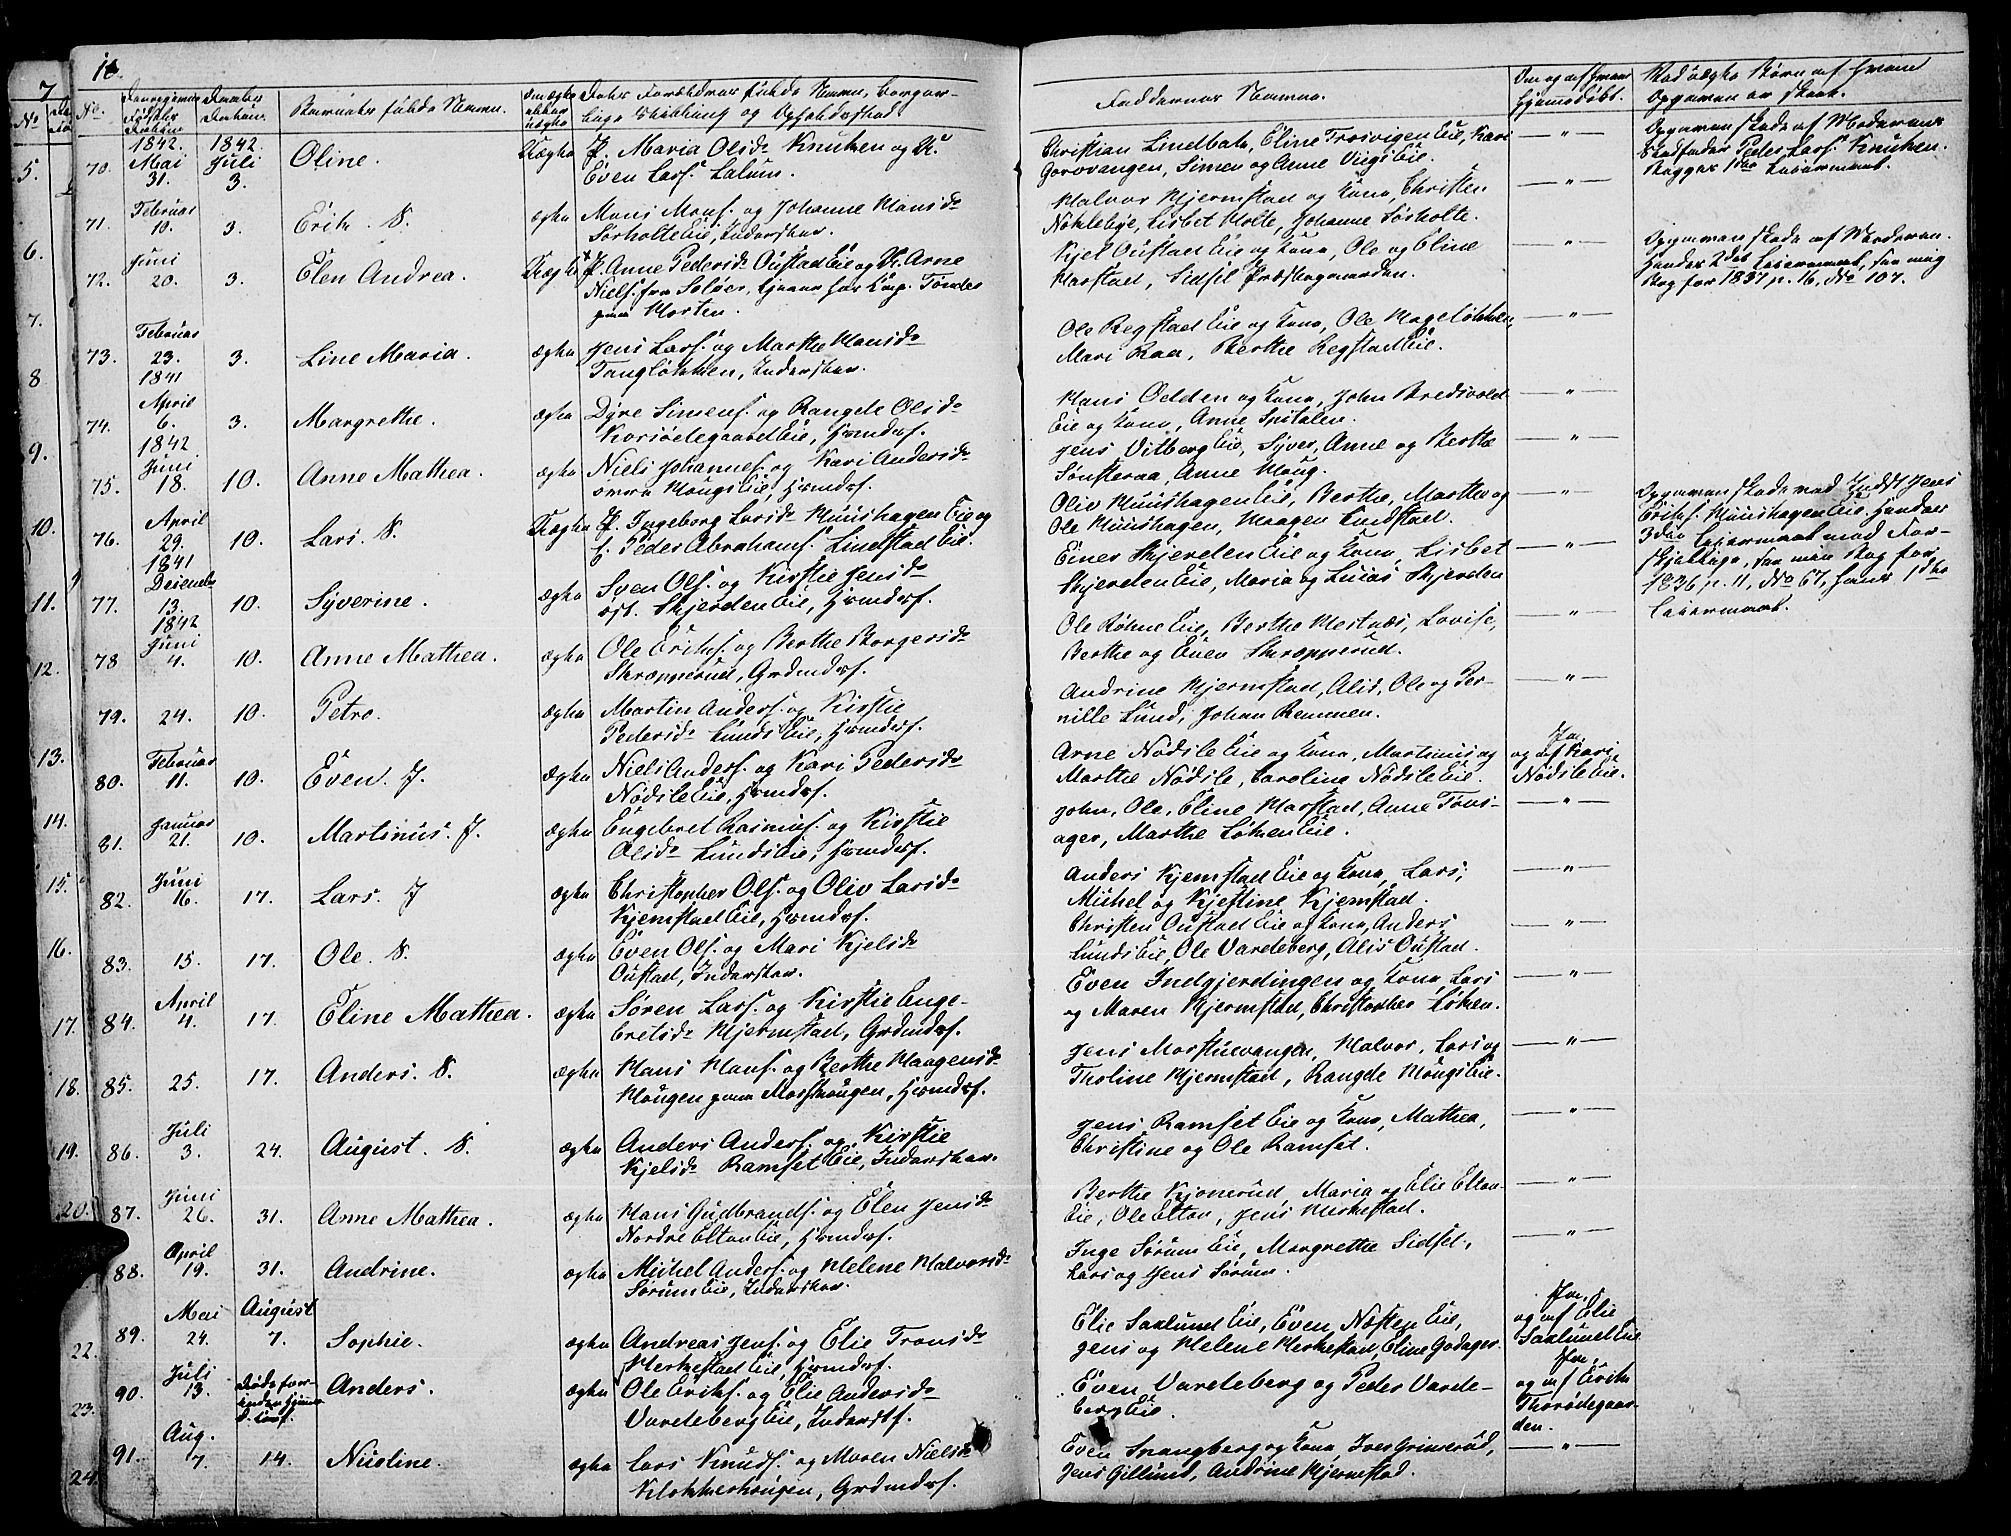 10.
No.
Barnets fulde Navn.
Faddernes Navne.
1842. 1842.
70. Mai 31. Juli 3. Oline. Uægte P. Maria Olsd. Knutsen og U. Even Lars. Lalum.
Christian Lindbak, Eline Trosvigen Eie, Kari
Gorovangen, Simen og Anne Vings Eie. — " —
Opgaven skede af Moderens
Stedfader Peder Lars. Knutsen.
Begges 1ste Leiermaal.
71. Februar 10. 3. Erik. V. ægte Mons Mons. og Johanne Hansd.
Sørholte Eie, Inderster.
Halvor Hjermstad og Kone, Christen
Noklebye, Lisbet Holte, Johanne Sørholte. — " —
72. Juni 20. 3. Elen Andrea. Uægte P. Anne Pedersd. Oustad Eie og U. Arne
Niels. fra Soløer, tjener hos Cap. Tønder
paa Horten.
Kjel Oustad Eie og Kone, Ole og Eline
Harstad, Sidsel Præstegaarden. — " —
Opgaven skede af Moderen.
Hendes 2det Leiermaal, see min
Bog for 1837 p. 16, No 107.
73. Februar 23. 3. Line Maria. ægte Jens Lars. og Marthe Hansd.
Tangløkken, Inderster.
Ole Regstad Eie og Kone, Ole Hageløkken,
Mari Raa, Berthe Regstad Eie. — " —
1841
74. April 6. 3. Margrethe. ægte Dyre Simens. og Rangdi Olsd.
Korsødegaard Eie, Hmdsf.
Hans Odden og Kone, John Bredsvold
Eie og Kone, Anne Spitalen. — " —
1842
75. Juni 18. 10. Anne Mathea. ægte Niels Johannes. og Kari Andersd.
øvre Hougs Eie, Hmdsf.
Jens Vitberg Eie, Syver, Anne og Berthe
Sønsteraa, Anne Houg. — " —
76. April 29. 10. Lars. V. Uægte P. Ingeborg Larsd. Muushagen Eie og
U. Peder Abrahams. Lindstad Eie.
Oliv Muushagen Eie, Berthe, Marthe og
Ole Muushagen, Haagen Lindstad. — " —
Opgaven skede ved Indst Jens
Eriks. Muushagen Eie. Hendes
3die Leiermaal med For-
skjellige, see min Bog for
1836 p. 11, No 67, hans 1ste
Leiermaal.
1841
77. Decemb. 13. 10. Syverine. ægte Sven Ols. og Kirstie Jensd.
øst. Skjerden Eie, Hmdsf.
Einer Skjerden Eie og Kone, Lisbet
Skjerden Eie, Maria og Lucas Skjerden — " —
1842
78 Juni 4. 10. Anne Mathea. ægte Ole Eriks. og Berthe Borgersd.
Skræpperud, Grdmdsf.
Ole Rohne Eie, Berthe Mestnæs, Lovise,
Berthe og Even Skræpperud. — " —
79. 24. 10. Petro. ægte Martin Anders. og Kirstie
Pedersd. Lunds Eie, Hmdsf.
Andrine Hjermstad, Alis, Ole og Per-
nille Lund, Johan Remmen. — " —
80. Februar 11. 10. Even. J. ægte Niels Anders. og Kari Pedersd.
Nødsle Eie, Hmdsf.
Arne Nodsle Eie og Kone, Martinus og
Marthe Nødsle, Caroline Nødsle Eie.
Ja,
og af Kari
Nødsle Eie.
81. Januar 21. 10. Martinus. J. ægte Engebret Rasmus. og Kirstie
Olsd. Lunds Eie, Hmdsf.
John, Ole, Eline Harstad, Anne Trons-
ager, Marthe Løken Eie. — " —
82. Juni 16. 17. Lars. J ægte Christopher Ols. og Oliv Larsd.
Kjemstad Eie, Hmdsf.
Anders Kjemstad Eie og Kone, Lars,
Michel og Kjestine Kjemstad. — " —
83. 15. 17. Ole. V. ægte Even Ols. og Mari Kjelsd.
Oustad, Inderster.
Christen Oustad Eie og Kone, Anders
Lunds Eie, Ole Vardeberg, Alis Oustad. — " —
84. April 4. 17. Eline Mathea. ægte Søren Lars. og Kirstie Enge-
bretsd. Hjermstad, Grdmdsf.
Even Indgjerdingen og Kone, Lars
og Maren Hjermstad, Christopher Løken. — " —
85. 25. 17. Anders. V. ægte Hans Hans. og Berthe Haagensd.
Hougen paa Morskougen, Hmdsf.
Jens Morstuevangen, Halvor, Lars og
Tholine Hjermstad, Rangde Hougs Eie. — " —
86. Juli 3. 24. August. V. ægte Anders Anders. og Kirstie
Kjelsd. Ramset Eie, Inderster.
Jens Ramset Eie og Kone, Mathea,
Christine og Ole Ramset. — " —
87. Juni 26. 31. Anne Mathea. ægte Hans Gudbrands. og Elen Jensd.
Nordre Elton Eie, Hmdsf.
Berthe Kjonerud, Maria og Elie Elton
Eie, Ole Elton, Jens Herkestad. — " —
88. April 19. 31. Andrine. ægte Michel Anders. og Helene Halvorsd.
Sørum Eie, Inderster.
Inge Sørum Eie, Margrethe Sidsel,
Lars og Jens Sørum. — " —
89. Mai 24. August 7. Sophie. ægte Andreas Jens. og Elie Tronsd.
Herkestad Eie, Hmdsf.
Elie Saxlund Eie, Even Nosten Eie,
Jens og Helene Herkestad, Eline Godager.
Ja,
og af Elie
Saxlund Eie
90. Juli 13. Anders. ægte Ole Eriks. og Elie Andersd.
Vardeberg Eie, Inderstf.
Even Vardeberg og Peder Varde-
berg Eie.
Ja,
og af Erik
Thorødegaar-
den.
91. Aug. 7. 14. Nicoline. ægte Lars Knuds. og Maren Nielsd.
Klokkerhougen, Grdmdsf.
Even Snangberg og Kone, Iver Grimerud,
Jens Gillund, Andrine Hjermstad. — " —